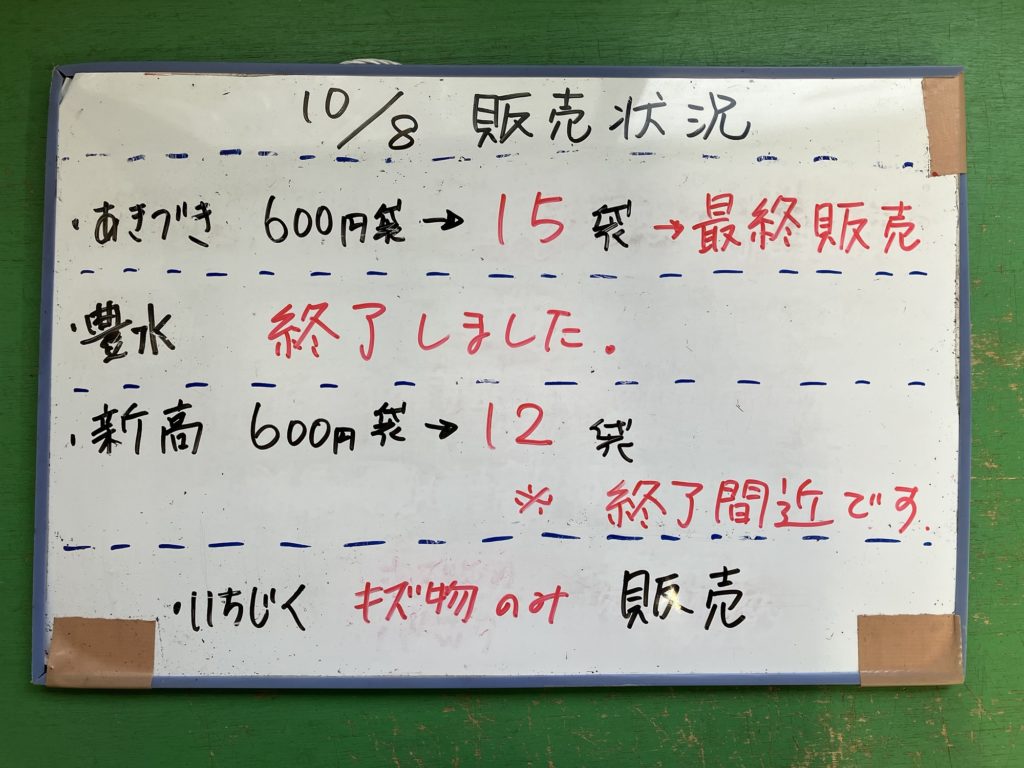 10/8 販売状況
・あきづき 600円袋→15袋→最終販売
・豊水 終了しました.
・新高 600円袋→12袋
※ 終了間近です.
・いちじく キズ物のみ 販売